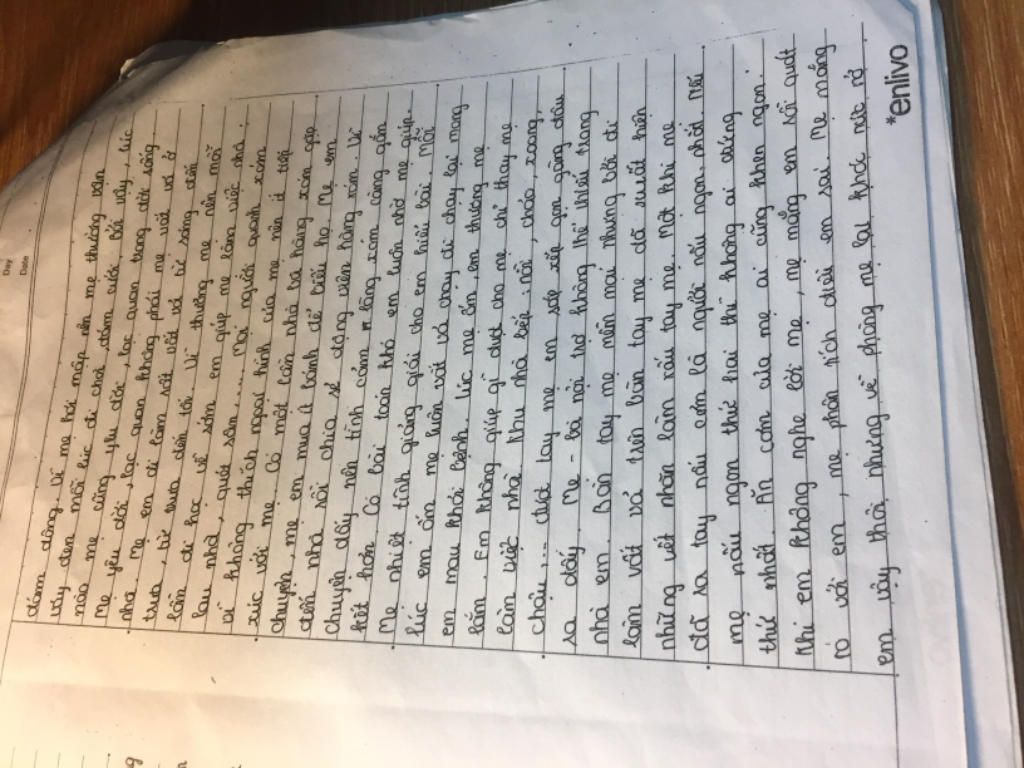 Day
Date
đảm đang. Vì mẹ hơi mập nên mẹ thường vận
váy đen mỗi lúc đi chơi, đám cưới. Bởi vậy, lúc
nào mẹ cũng yêu đời, lạc quan trong đời sống
Mẹ yêu đời, lạc quan không phải mẹ vứt vơ ở
nhà. Mẹ em đi làm rất vất vả từ sáng đến
trưa, từ trưa đến tối. Vì thương mẹ nên mỗi
lần đi học về sớm em giúp mẹ làm việc nhà:
lau nhà, quét sân.... Mọi người quanh xóm
vì không thích ngoại hình của mẹ nên ít tiếp
xúc với mẹ. Có một lần nhà bà hàng xóm gặp
chuyện, mẹ em mua ít bánh để biếu họ. Mẹ em
đến nhà rồi chia sẻ động viên hàng xóm. Từ
chuyện đấy nên tình cảm hàng xóm càng gắn
kết hơn. Có bài toán khó em luôn nhờ mẹ giúp.
Mẹ nhiệt tình giảng giải cho em hiểu bài. Mỗi
lúc em ốm mẹ luôn vất vả chạy đi chạy lại mong
em mau khỏi bệnh. Lúc mẹ ốm, em thương mẹ
lắm. Em không giúp gì được cho mẹ chỉ thay mẹ
làm việc nhà. Khu nhà bếp, nồi, chảo, xoong,
chậu... được tay mẹ em sắp xếp gọn gàng đâu
ra đấy. Mẹ - bà nội trợ không thể thiếu trong
nhà em. Bàn tay mẹ mềm mại nhưng bởi đi
làm vất vả trên bàn tay mẹ đã xuất hiện
những vết nhăn làm xấu tay mẹ. Một khi mẹ
đã ra tay nấu cơm là người nấu ngon nhất. Nếu
mẹ nấu ngon thứ hai thì không ai đứng
thứ nhất. Ăn cơm của mẹ ai cũng khen ngon.
Khi em không nghe lời mẹ, mẹ mắng em rồi quát
to với em, mẹ phân tích điều em sai. Mẹ mắng
em vậy thôi nhưng về phòng mẹ lại khóc nức nở.
*enlivo